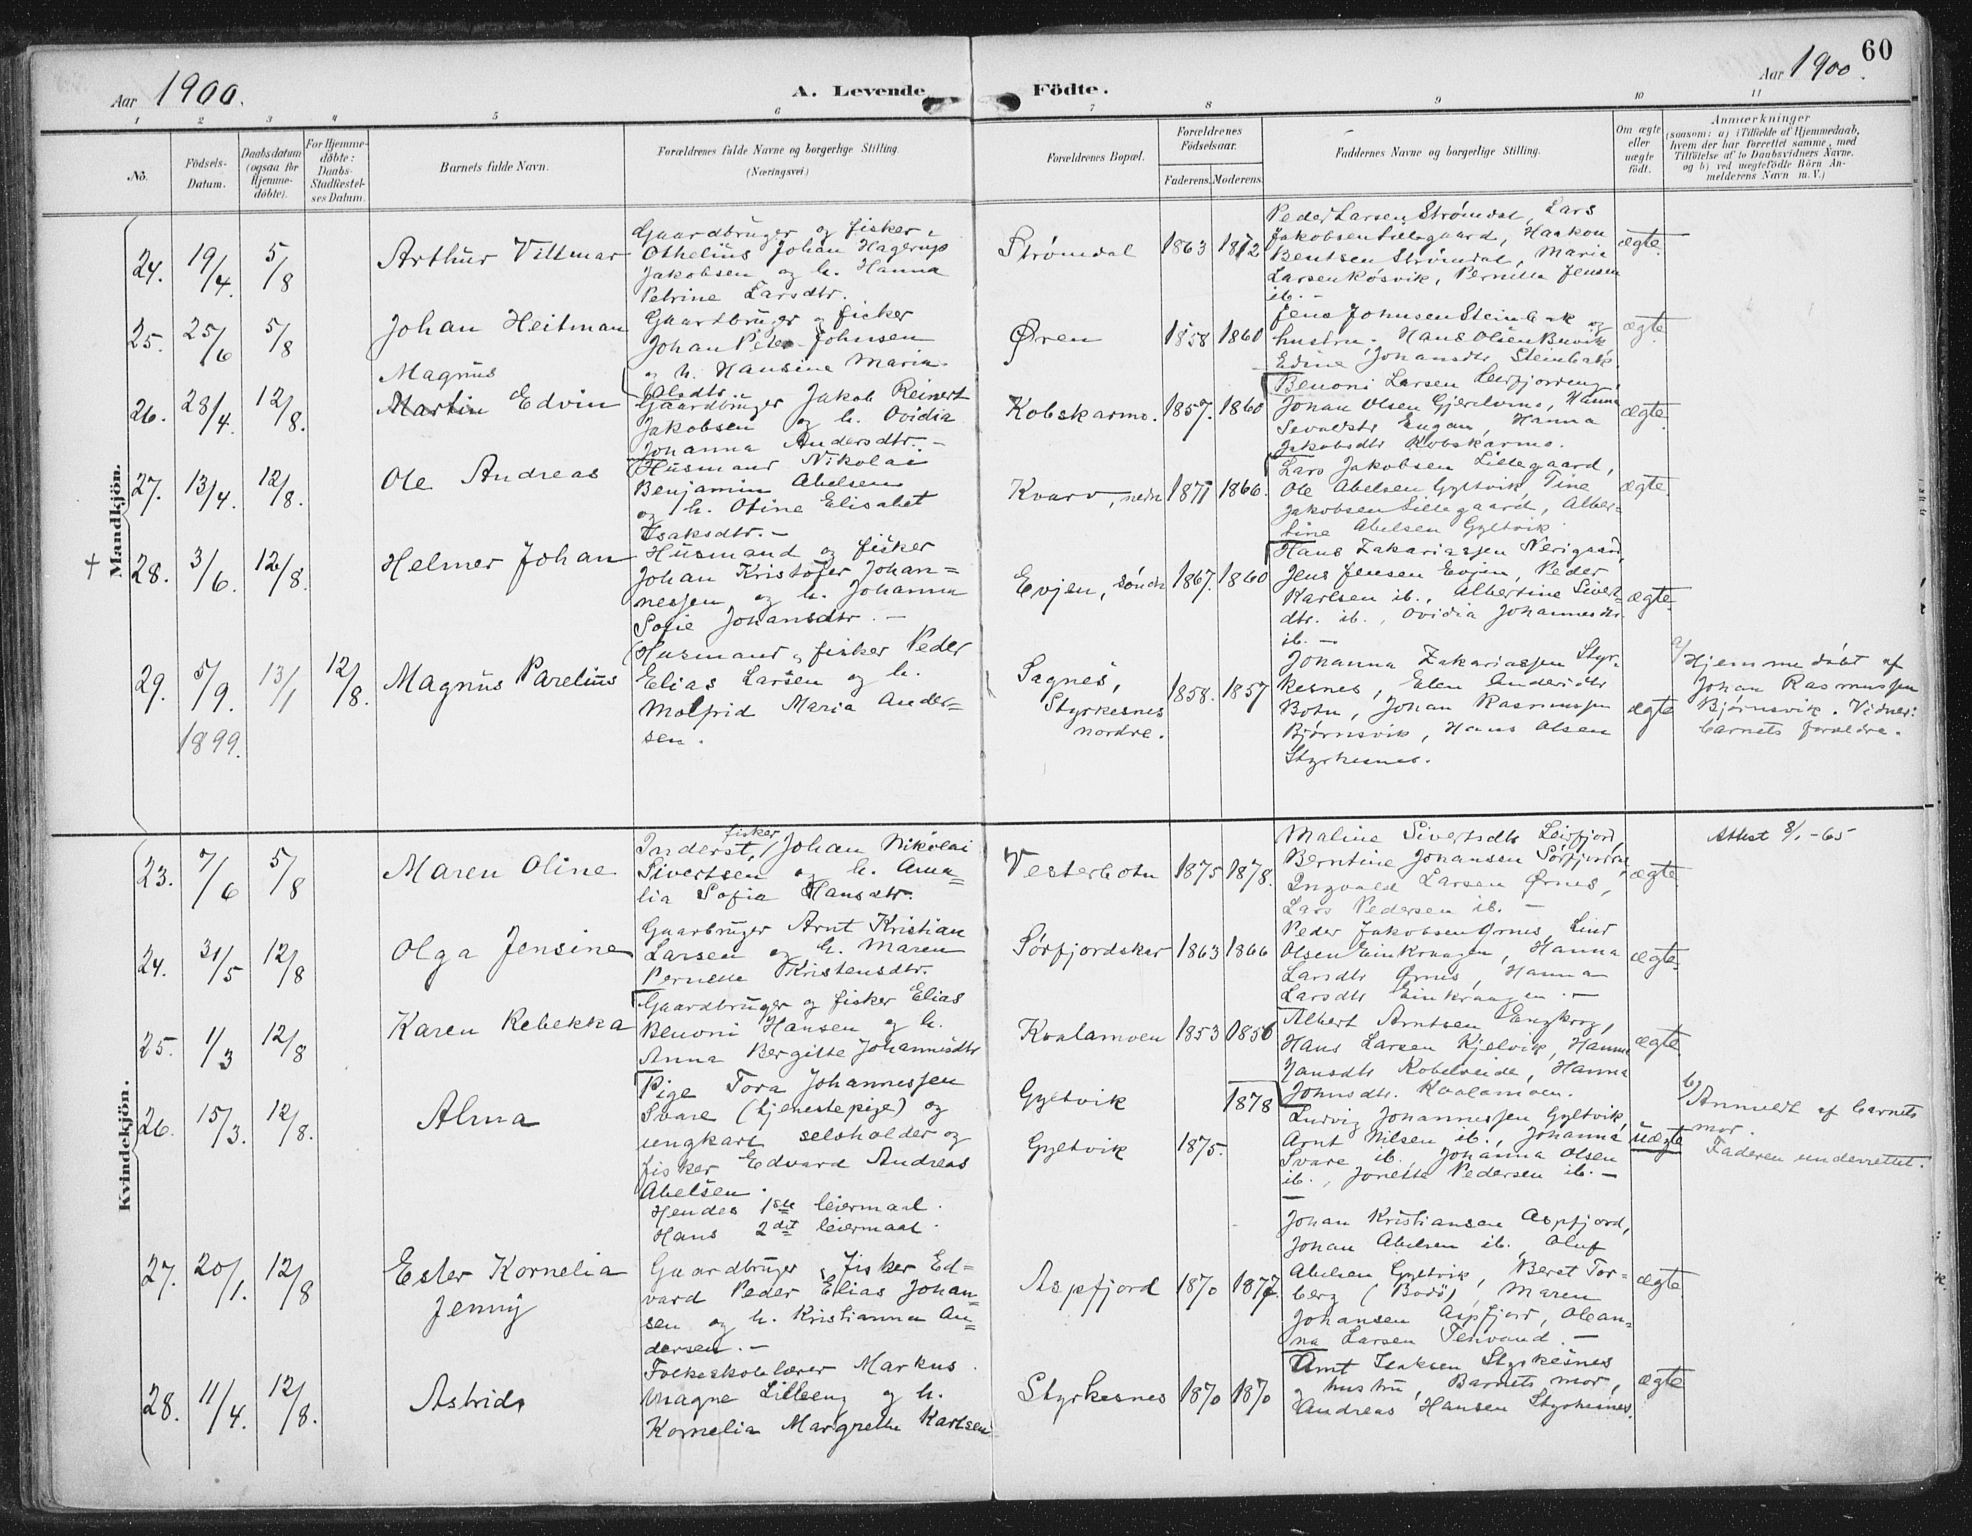 60
Aar 1900.
A. Levende Födte.
Aar 1900.
1 2 3 4 5 6 7 8 9 10 11
No.
Födsels-Datum.
Daabsdatum (ogsaa for Hjemme-döbte).
For Hjemme-döbte: Daabs-Stadfæstel-ses Datum.
Barnets fulde Navn.
Forældrenes fulde Navne og borgerlige Stilling.
(Næringsvei)
Forældrenes Bopæl.
Forældrenes Födselsaar.
Faderens. Moderens.
Faddernes Navne og borgerlige Stilling.
Om ægte eller uægte födt.
Anmærkninger
(saasom: a) i Tilfælde af Hjemmedaab, hvem der har forrettet samme, med Tilföielse af to Daabsvidners Navne, og b) ved uægtefödte Börn An-melderens Navn m. V.)
Mandkjön.
24. 19/4. 5/8 Arthur Vittmar
Gaardbruger og fisker
Othelius Johan Hagerup
Jakobsen og h. Hanna
Petrine Larsdtr.
Strømdal 1863 1872
Peder Larsen Strømdal, Lars
Jakobsen Lillegaard, Haakon
Bentsen Strømdal, Marie
Larsen Røsvik, Pernille Jensen
ib. –
ægte.
25. 25/6 5/8 Johan Heitman
Magnus
Gaardbruger og fisker
Johan Peter Johnsen
og h. Hansine Maria
Olsdtr.
Øren 1858 1860
Jens Johnsen Steinbak og
hustru, Hans Olsen Buvik,
Edine Johansdtr. Steinbak.
ægte.
26. 28/4. 12/8. Martin Edvin
Gaardbruger Jakob Reinert
Jakobsen og h. Ovidia
Johanna Andersdtr. –
Kobskarmo. 1857. 1860
Benoni Larsen Leirfjorden,
Johan Olsen Gjerdmo, Hanna
Sevaldstr Engan, Hanna
Jakobsdtr Kobskarmo.
ægte.
27. 13/4. 12/8. Ole Andreas
Husmand Nikolai
Benjamin Abelsen
og h. Otine Elisabet
Isaksdtr. –
Kvarv, nedre 1871 1866.
Lars Jakobsen Lillegaard,
Ole Abelsen Gyltvik, Tine
Jakobsen Lillegaard, Alber-
tine Abelsen Gyltvik
ægte.
+ 28. 3/6. 12/8. Helmer Johan
Husmand og fisker
Johan Kristofer Johan=
nessen og h. Johanna
Sofie Johansdtr. –
Evjen, søndre 1867. 1860
Hans Zakariassen Nerigaard,
Jens Jensen Evjen, Peder
Karlsen ib., Albertine Sivert-
dtr. ib., Ovidia Johannesdtr.
ib. –
ægte.
29. 5/9. 1899. 13/1 12/8. Magnus Parelius
Husmand og fisker Peder
Elias Larsen og h.
Molfrid Maria Ander=
sen.
Sagnes,
Styrkesnes
nordre.
1858. 1857
Johanna Zakariassen Styr-
kesnes, Elen Andersdtr
Botn, Johan Rasmussen
Bjørnsvik, Hans Olsen
Styrkesnes.
ægte
a/ Hjemmedøbt af
Johan Rasmussen
Bjørnsvik. Vidner:
barnets forældre.
Kvindekjön.
23. 7/6 5/8 Maren Oline
Inderst, fisker Johan Nikolai
Sivertsen og h. Ama=
lia Sofia Hansdtr.
Vesterbotn 1875 1878.
Maline Sivertsdtr Leirfjord,
Berntine Johansen Sørfjorden,
Ingvald Larsen Ørnes,
Lars Pedersen ib. –
ægte.
Attest 8/1-65
24. 31/5 12/8 Olga Jensine
Gaarbruger Arnt Kristian
Larsen og h. Maren
Pernelle Kristensdtr.
Sørfjordskar 1863 1866
Peder Jakobsen Ørnes, Lind
Olsen Einkraagen, Hanna
Larsdtr Ørnes, Hanna
Larsdtr Einkraagen. –
ægte.
25. 1/3 12/8 Karen Rebekka
Gaardbruger og fisker Elias
Benoni Hansen og h.
Anna Bergitte Johannisdtr
Kvalamoen 1853 1856
Albert Arntsen Engkrog,
Hans Larsen Kjelvik, Hanna
Jansdtr Kobelveide, Hanna
Johnsdtr. Kvalamoen.
ægte
26. 15/3. 12/8. Alma
Pige Tora Johannessen
Svare (tjenestepige) og
ungkarl selsholder og
fisker Edvard Andreas
Abelsen.
Hendes 1ste leiermaal.
Hans 2det leiermaal.
Gyltvik 1878
Gyltvik 1875.
Ludvig Johannessen Gyltvik,
Arnt Nilsen ib., Johanna
Svare ib. Johanna Olsen
ib., Jonette Pedersen ib. –
uægte
b/ Anmeldt af barnets
mor.
Faderen underrettet.
27. 20/1. 12/8 Ester Kornelia
Jenny
Gaardbruger & fisker Ed-
vard Peder Elias Johan=
sen og h. Kristianna An=
dersen. –
Aspfjord 1870 1877.
Johan Kristiansen Aspfjord,
Johan Abelsen ib. Oluf
Abelsen Gyltvik, Beret Tor-
berg (Bodø), Maren
Johansen Aspfjord, Olean-
na Larsen Tenvand. –
ægte
28. 11/4. 12/8. Astrid
Folkeskolelærer Markus
Magne Lilleeng og h.
Kornelia Margrethe Karlsen
Styrkesnes 1870 1870
Arnt Isaksen Styrkesnes
og hustru, Barnets mor,
Andreas Hansen Styrkesnes.
ægte